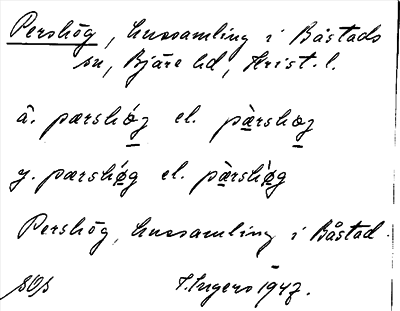 Pershög, hussamling i Båstads
sn, Bjäre hd, Krist. l.
ä. pærshǿg el. pæ̀rshøg
y. pærshǿg el. pæ̀rshø̀g
Pershög, hussamling i Båstad.
I. Ingers 1947.